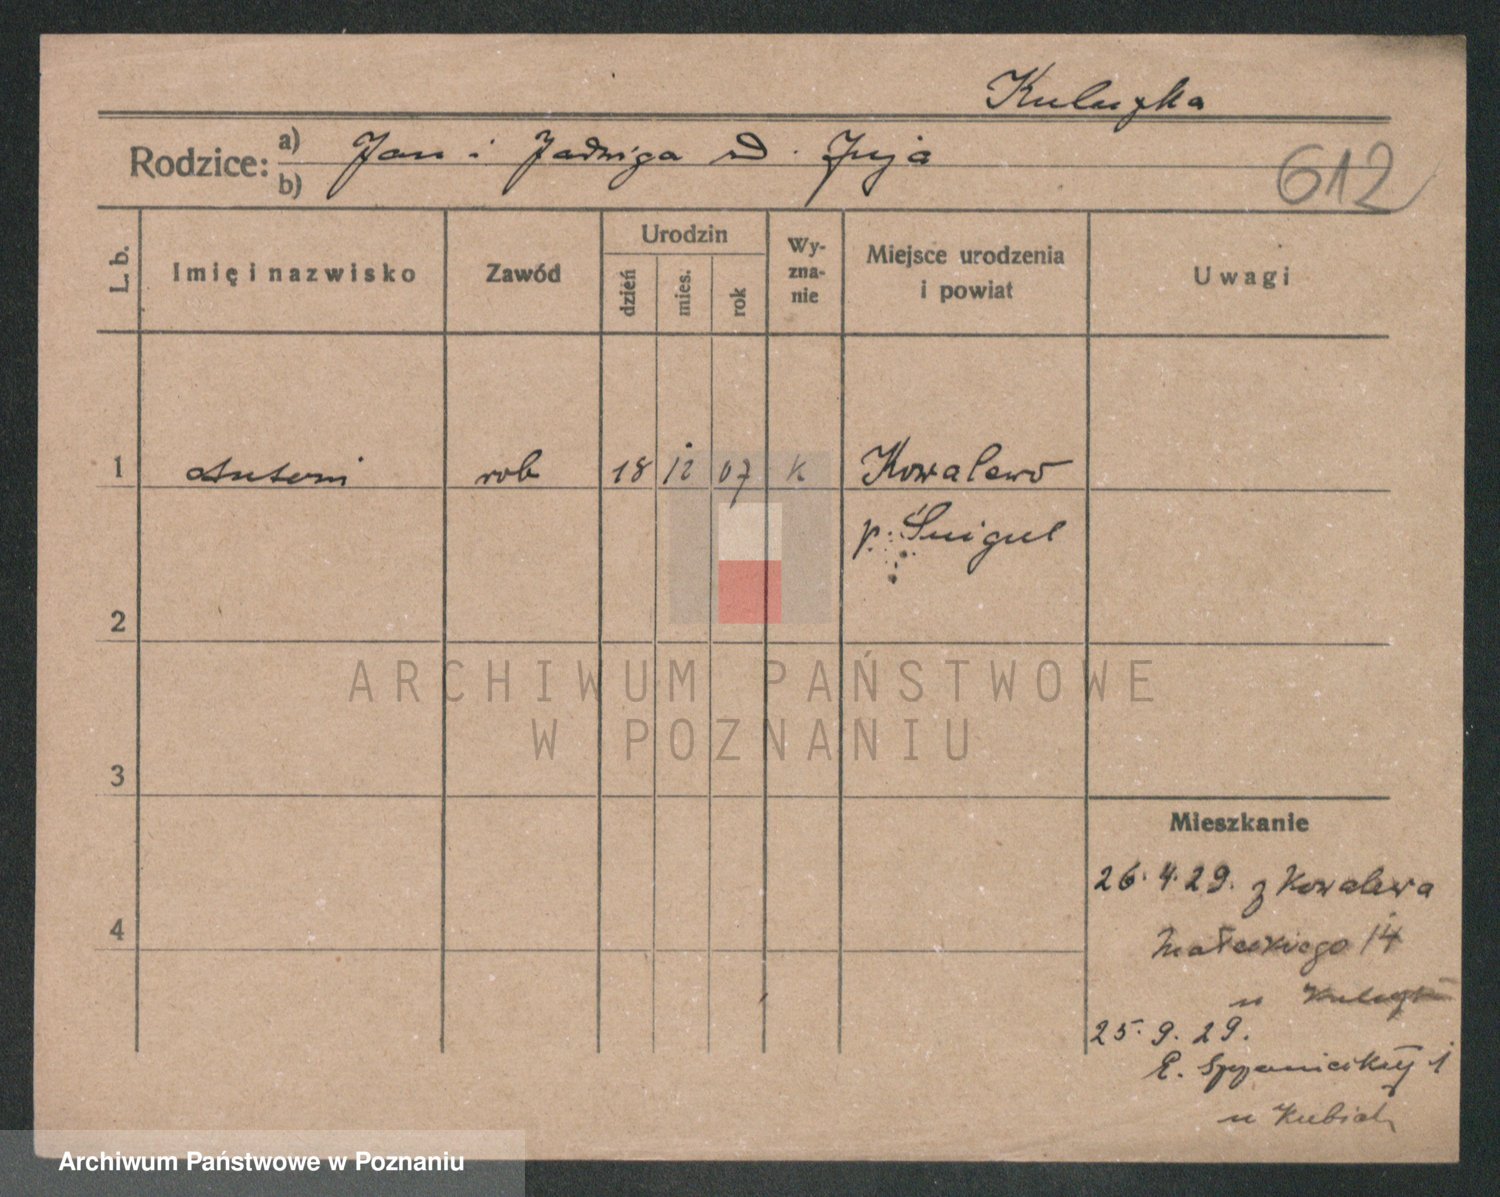 Kuluzka
Rodzice: a) b) Jan i Jadwiga
612
L. b.
Imię i nazwisko
Zawód
Urodzin
dzień
mies.
rok
Wy-
zna-
nie
Miejsce urodzenia
i powiat
Uwagi
1 Antoni rob 18 12 07 k Kowalewo
p. Śmigiel
2
3
4
Mieszkanie
26. 4. 29. z Kowalewa
Małeckiego 14
u
25. 9. 29.
E. Szczanieckiej 1
u
ARCHIWUM PAŃSTWOWE
W POZNANIU
Archiwum Państwowe w Poznaniu